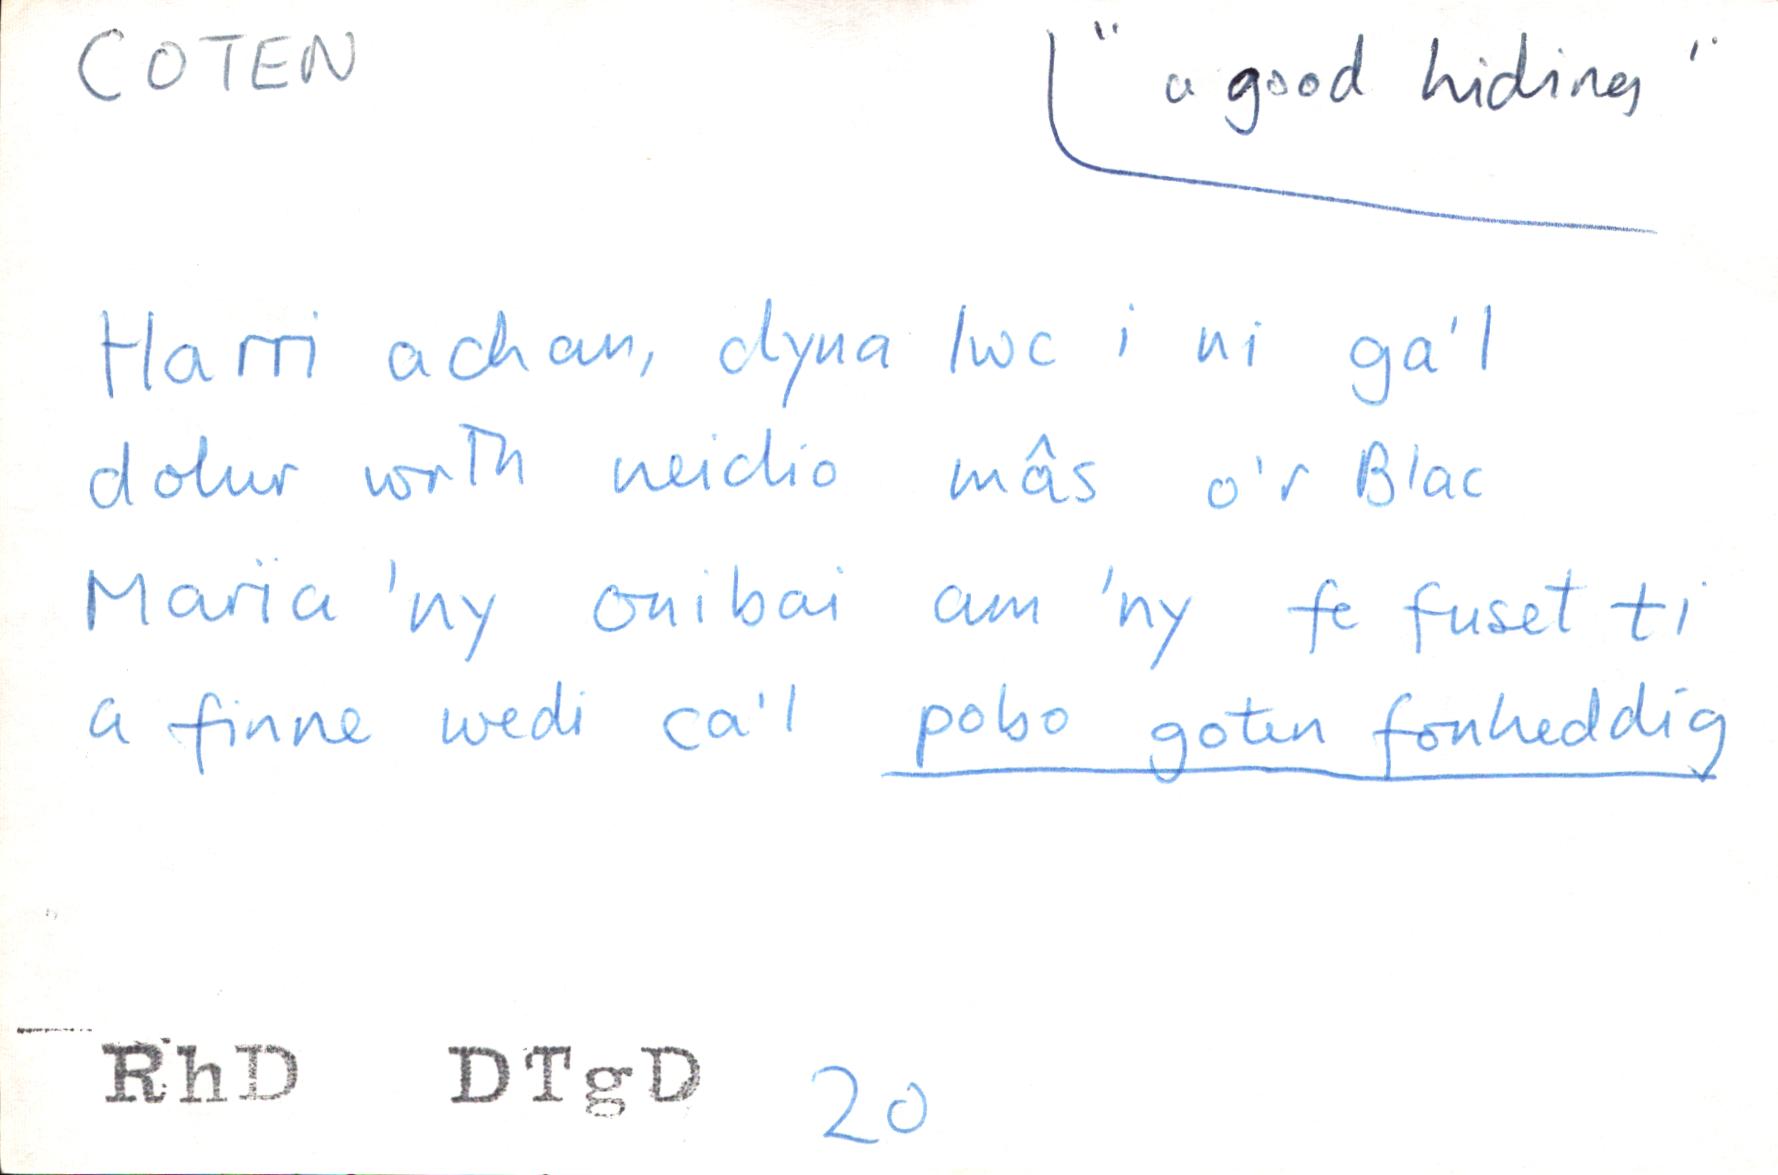 COTEN
"a good hiding"
Harri achan, dyna lwc i ni ga'l
dolur wrth neidio mâs o'r Blac
Maria 'ny onibai am 'ny fe fuset ti
a finne wedi ca'l pobo goten fonheddig
RhD DTgD 20